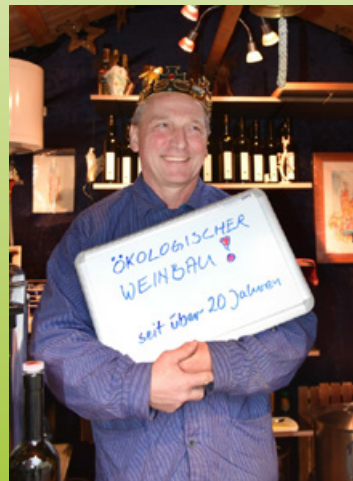 ÖKOLOGISCHER
WEINBAU!
seit über 20 Jahren